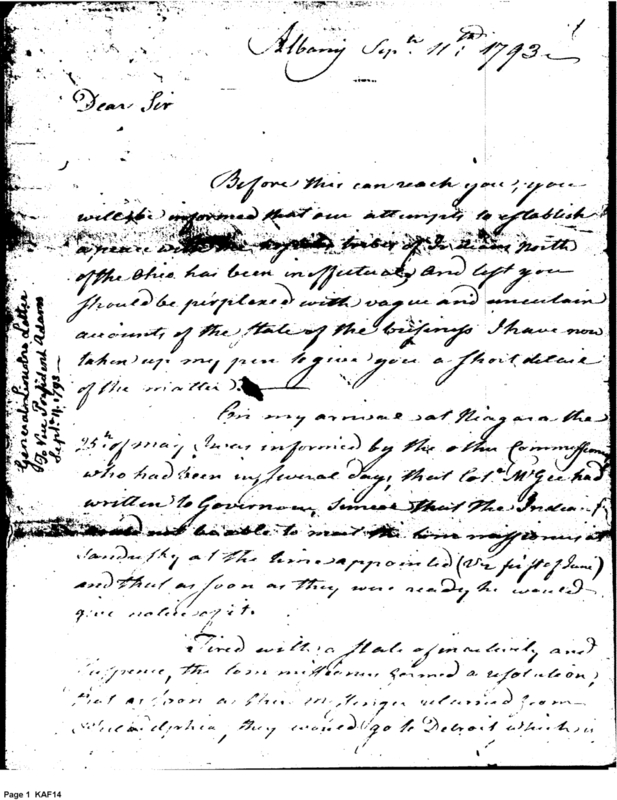 Albany Sepr. 11th 1793
Dear Sir
Before this can reach you, you
will be informed that our attempts to establish
a peace with the tribes of Indians north
of the Ohio has been ineffectual, and lest you
should be perplexed with vague and uncertain
accounts of the state of the business I have now
taken up my pen to give you a short detail
of the matter.
On my arrival at Niagara the
25th of may I was informed by the other Commissioners
who had been in several days, that Colo. McGee had
written to Governour Simcoe that the Indians
would not be able to meet the commissioners at
Sandusky at the time appointed (viz first of June)
and that as soon as they were ready he would
give notice of it.
Tired with a state of inactivity and
suspence, the commissioners formed a resolution,
that as soon as their messenger returned from
Philadelphia, they would go to Detroit which is
General Lincolns Letter
To Vice President Adams
Sept. 11. 1793
Page 1 KAF14